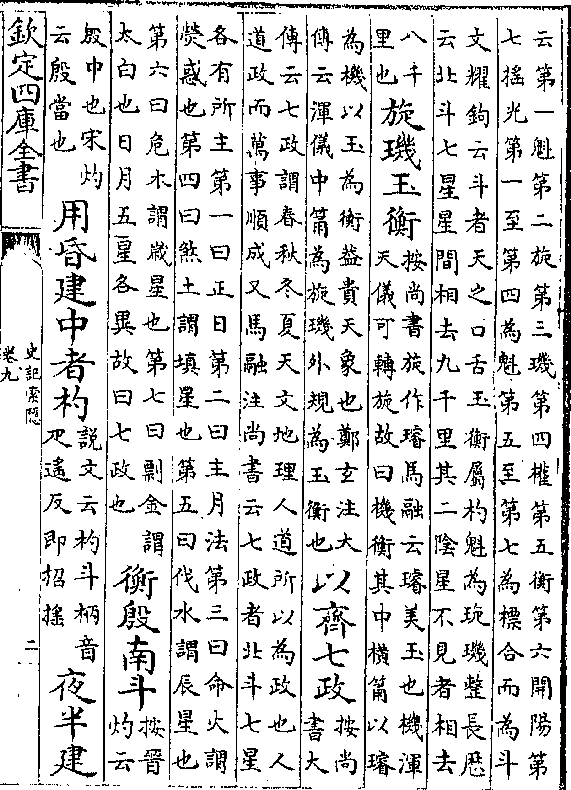 云第一魁第二旋第三璣第四權第五衡第六開陽第
七搖光第一至第四為魁第五至第七為標合而為斗
文耀鉤云斗者天之口舌玉衡屬杓魁為琁璣整長厯
云北斗七星星間相去九千里其二陰星不見者相去
八千
里也
旋璣玉衡
按尚書旋作璿馬融云璿美玉也機渾
天儀可轉旋故曰機衡其中橫筩以璿
為機以玉為衡葢貴天象也鄭玄注大
傳云渾儀中筩為旋璣外規為玉衡也
以齊七政
按尚
書大
傳云七政謂春秋冬夏天文地理人道所以為政也人
道政而萬事順成又馬融注尚書云七政者北斗七星
各有所主第一曰正日第二曰主月法第三曰命火謂
熒惑也第四曰煞土謂填星也第五曰伐水謂辰星也
第六曰危木謂歲星也第七曰剽金謂
太白也日月五星各異故曰七政也
衡殷南斗
按晉
灼云
殷中也宋灼
云殷當也
用昏建中者杓
說文云杓斗柄音
疋遙反即招搖
夜半建
欽定四庫全書
史記索隱
卷九
二